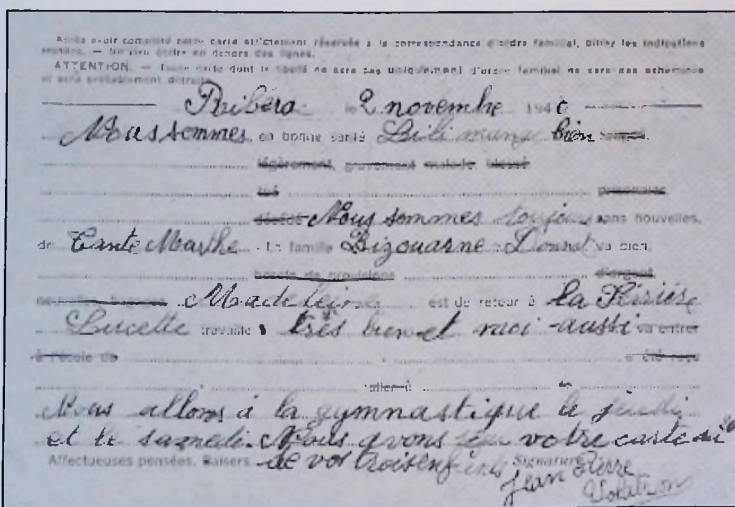 Après avoir complété cette carte strictement réservée à la correspondance d'ordre familial, biffez les indications
inutiles. — Ne rien écrire en dehors des lignes.
ATTENTION. — Toute carte dont le libellé ne sera pas uniquement d'ordre familial ne sera pas acheminée
et sera probablement détruite.
Ribérac le 2 novembre 1940
Nous sommes en bonne santé Lili mange bien
légèrement, gravement malade, blessé
tué prisonnier
décédé Nous sommes toujours sans nouvelles
de Tante Marthe. La famille Bizouarne va bien.
besoin de provisions d'argent
Madeleine est de retour à la
Lucette travaille très bien et moi aussi va entrer
à l'école de a été reçu
aller à
Nous allons à la gymnastique le jeudi
et le samedi. Nous avons reçu votre carte du
Affectueuses pensées. Baisers de vos trois enfants Signature
Jean Pierre